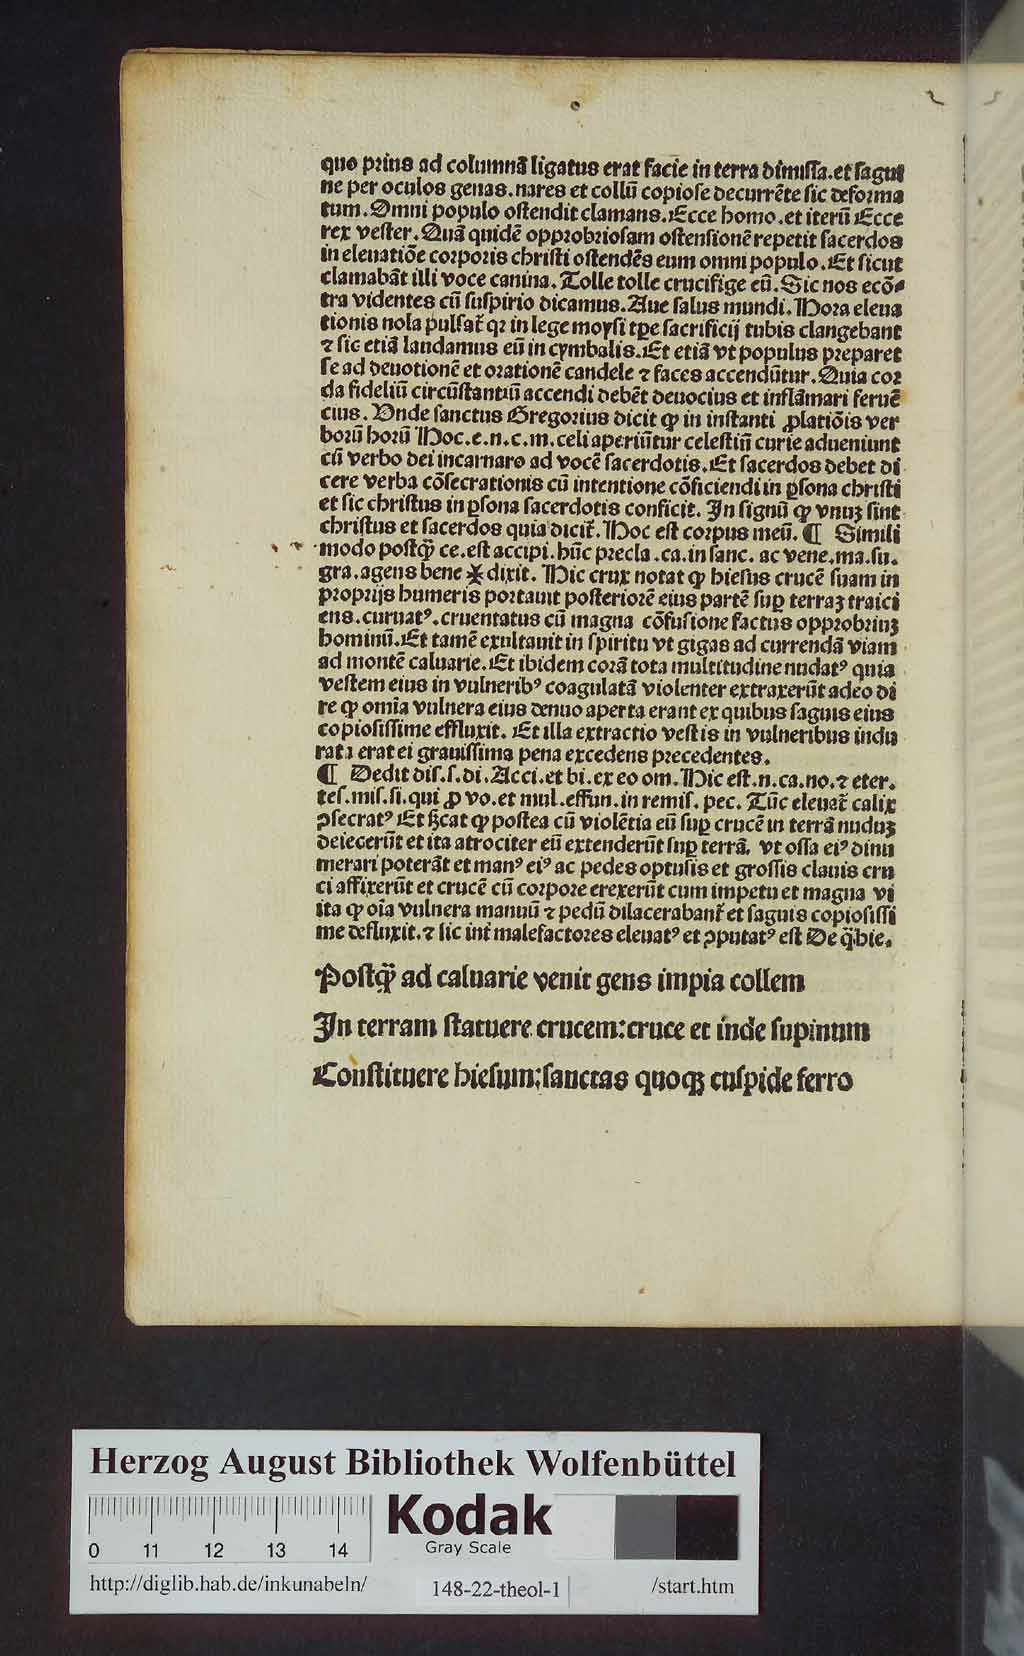 quo prius ad columnā ligatus erat facie in terra dimissa.et sagui
ne per oculos genas.nares et collū copiose decurrēte sic deforma
tum.Omni populo ostendit clamans.Ecce homo.et iterū Ecce
rex vester.Quā quidē opprobriosam ostensionē repetit sacerdos
in eleuatiōe corporis christi ostendēs eum omni populo.Et sicut
clamabāt illi voce canina.Tolle tolle crucifige eū.Sic nos ecō⸗
tra videntes cū suspirio dicamus.Aue salus mundi.Hora eleua
tionis nola pulsat̄ qꝛ in lege moysi tꝑe sacrificij tubis clangebant
⁊ sic etiā laudamus eū in cymbalis.Et etiā vt populus preparet
se ad deuotionē et orationē candele ⁊ faces accendūtur.Quia cor
da fideliū circūstantiū accendi debēt deuocius et inflāmari feruē
cius.Unde sanctus Gregorius dicit ꝙ in instanti ꝓlatiōis ver
borū horū Hoc.e.n.c.m.celi aperiūtur celestiū curie adueniunt
cū verbo dei incarnaro ad vocē sacerdotis.Et sacerdos debet di
cere verba cōsecrationis cū intentione cōficiendi in ꝑsona christi
et sic christus in ꝑsona sacerdotis conficit. In signū ꝙ vnuꝫ sint
christus et sacerdos quia dicit̄.Hoc est corpus meū.¶ Simili
modo postꝙ̄ ce.est accipi.hūc precla.ca.in sanc. ac vene.ma.su.
gra.agens bene ✠ dixit. Hic crux notat ꝙ hiesus crucē suam in
proprijs humeris portauit posteriorē eius partē suꝑ terraꝫ traici
ens.curuatꝰ.cruentatus cū magna cōfusione factus opprobriuꝫ
hominū.Et tamē exultauit in spiritu vt gigas ad currendā viam
ad montē caluarie.Et ibidem corā tota multitudine nudatꝰ quia
vestem eius in vulneribꝰ coagulatā violenter extraxerūt adeo di
re ꝙ omīa vulnera eius denuo aperta erant ex quibus saguis eius
copiosissime effluxit. Et illa extractio vestis in vulneribus indu
rata erat ei grauissima pena excedens precedentes.
¶ Dedit dis.s.di.Acci.et bi.ex eo om.Hic est.n.ca.no.⁊ eter.
tes.mis.fi.qui ꝓ vo.et mul.effun.in remis. pec. Tūc eleuat̄ calix
ꝯsecratꝰ Et sꝫcat ꝙ postea cū violētia eū suꝑ crucē in terrā nuduꝫ
deiecerūt et ita atrociter eū extenderūt suꝑ terrā. vt ossa eiꝰ dinu
merari poterāt et manꝰ eiꝰ ac pedes optusis et grossis clauis cru
ci affixerūt et crucē cū corpore erexerūt cum impetu et magna vi
ita ꝙ oīa vulnera manuū ⁊ pedū dilacerabant̄ et saguis copiosissi
me defluxit.⁊ sic int̄ malefactores eleuatꝰ et ꝯputatꝰ est De q̄ hie.
Postꝙ̄ ad caluarie venit gens impia collem
In terram statuere crucem:cruce et inde supinum
Constituere hiesum:sanctas quoqꝫ cuspide ferro
Herzog August Bibliothek Wolfenbüttel
0 11 12 13 14
Kodak
Gray Scale
http://diglib.hab.de/inkunabeln/ 148-22-theol-1 /start.htm